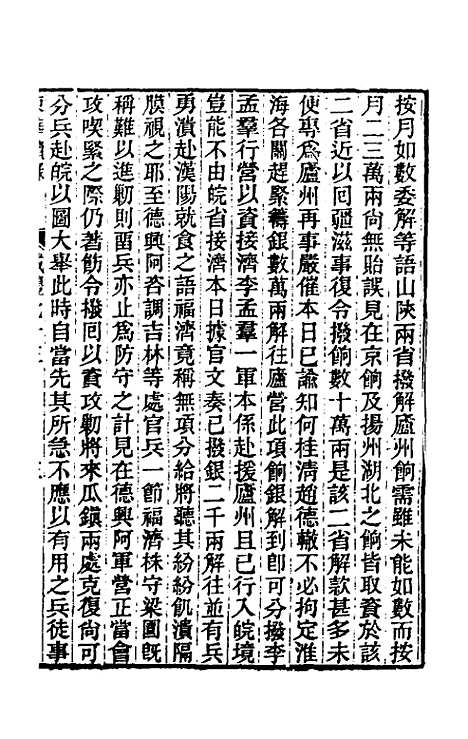 按月如數委解等語山陝兩省撥解廬州餉需雖未能如數而按
月二三萬兩尙無貽誤見在京餉及揚州湖北之餉皆取資於該
二省近以回疆滋事復令撥餉數十萬兩是該二省解款甚多未
便專爲廬州再事嚴催本日已諭知何桂淸趙德轍不必拘定淮
海各關趕緊籌銀數萬兩解往廬營此項餉銀解到卽可分撥李
孟羣行營以資接濟李孟羣一軍本係赴援廬州且已行入皖境
豈能不由皖省接濟本日據官文奏已撥銀二千兩解往並有兵
勇潰赴漢陽就食之語福濟竟稱無項分給將聽其紛紛飢潰隔
膜視之耶至德興阿咨調吉林等處官兵一節福濟株守梁園旣
稱難以進勦則留兵亦止爲防守之計見在德興阿軍營正當會
攻喫緊之際仍著飭令撥回以資攻勦將來瓜鎭兩處克復尙可
分兵赴皖以圖大舉此時自當先其所急不應以有用之兵徒事